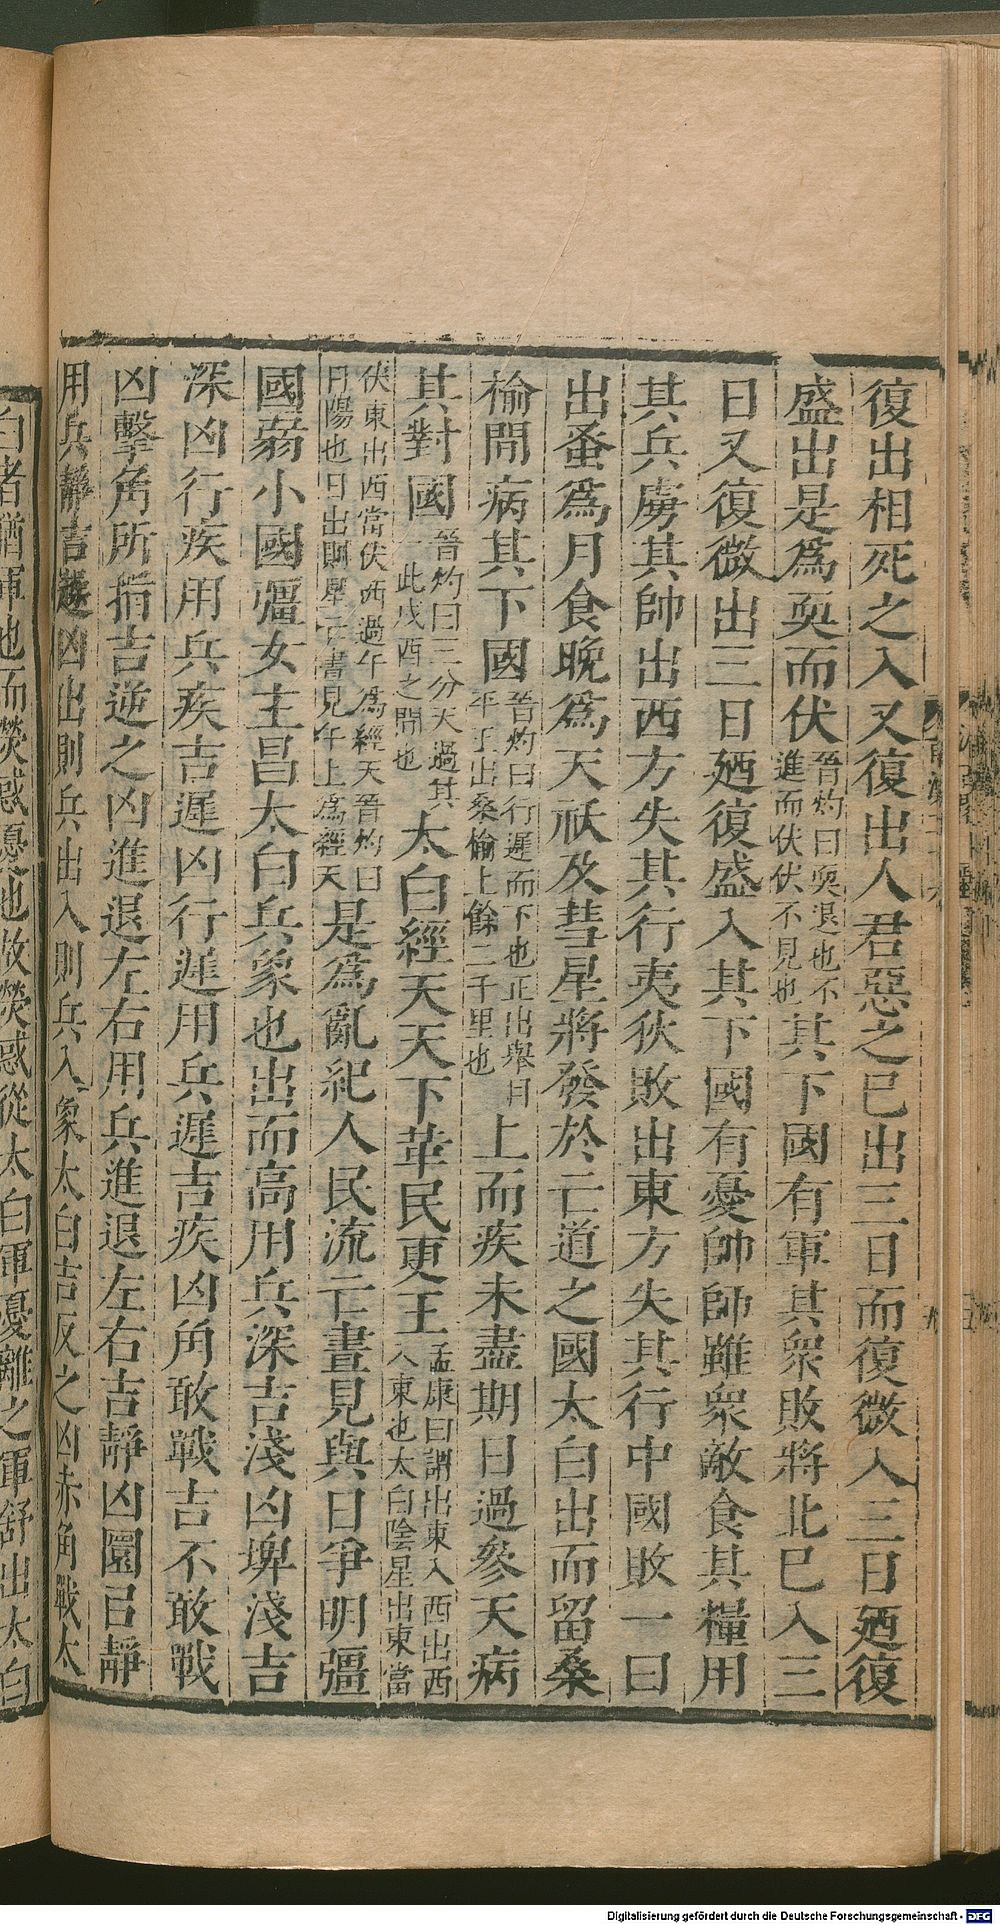 復出相死之入又復出人君惡之已出三日而復微入三日廼復
盛出是為耎而伏晉灼曰耎退也不進而伏伏不見也其下國有軍其衆敗將北已入三
日又復微出三日廼復盛入其下國有憂師師雖衆敵食其糧用
其兵虜其帥出西方失其行夷狄敗出東方失其行中國敗一曰
出蚤為月食晚為天祅及彗星將發於亡道之國太白出而留桑
榆間病其下國晉灼曰行遲而下也正出舉目平正出桑榆上餘二千里也上而疾未盡期日過參天病
其對國晉灼曰三分天過其一此戌酉之間也太白經天天下革民更王孟康曰謂出東入西出西入東也太白陰星出東當
伏東出西當伏西過午為經天晉灼曰日陽也日出則星亡晝見午上為經天是為亂紀人民流亡晝見與日爭明彊
國弱小國彊女主昌太白兵象也出而高用兵深吉淺凶埤淺吉
深凶行疾用兵疾吉遲凶行遲用兵遲吉疾凶角敢戰吉不敢戰
凶擊角所指吉逆之凶進退左右用兵進退左右吉靜凶圜㠯靜
用兵靜吉趮凶出則兵出入則兵入象太白吉反之凶赤角戰太
白者猶軍也而熒惑憂也故熒惑從太白軍憂離之軍舒出太白
Digitalisierung gefördert durch die Deutsche Forschungsgemeinschaft - DFG